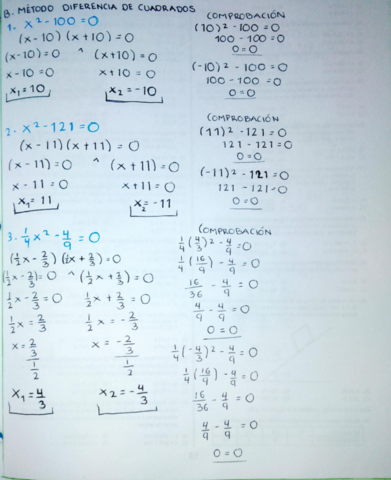 B. MÉTODO DIFERENCIA DE CUADRADOS
1. x² - 100 = 0
(x - 10) (x + 10) = 0
(x - 10) = 0 ^ (x + 10) = 0
x - 10 = 0 x + 10 = 0
x₁ = 10 x₂ = -10
COMPROBACIÓN
(10)² - 100 = 0
100 - 100 = 0
0 = 0
(-10)² - 100 = 0
100 - 100 = 0
0 = 0
2. x² - 121 = 0
(x - 11) (x + 11) = 0
(x - 11) = 0 ^ (x + 11) = 0
x - 11 = 0 x + 11 = 0
x₁ = 11 x₂ = -11
COMPROBACIÓN
(11)² - 121 = 0
121 - 121 = 0
0 = 0
(-11)² - 121 = 0
121 - 121 = 0
0 = 0
3. 1/4 x² - 4/9 = 0
(1/2 x - 2/3) (1/2 x + 2/3) = 0
(1/2 x - 2/3) = 0 ^ (1/2 x + 2/3) = 0
1/2 x - 2/3 = 0 1/2 x + 2/3 = 0
1/2 x = 2/3 1/2 x = - 2/3
x = 2/3 / 1/2 x = - 2/3 / 1/2
x₁ = 4/3 x₂ = - 4/3
COMPROBACIÓN
1/4 (4/3)² - 4/9 = 0
1/4 (16/9) - 4/9 = 0
16/36 - 4/9 = 0
4/9 - 4/9 = 0
0 = 0
1/4 (-4/3)² - 4/9 = 0
1/4 (16/9) - 4/9 = 0
16/36 - 4/9 = 0
4/9 - 4/9 = 0
0 = 0